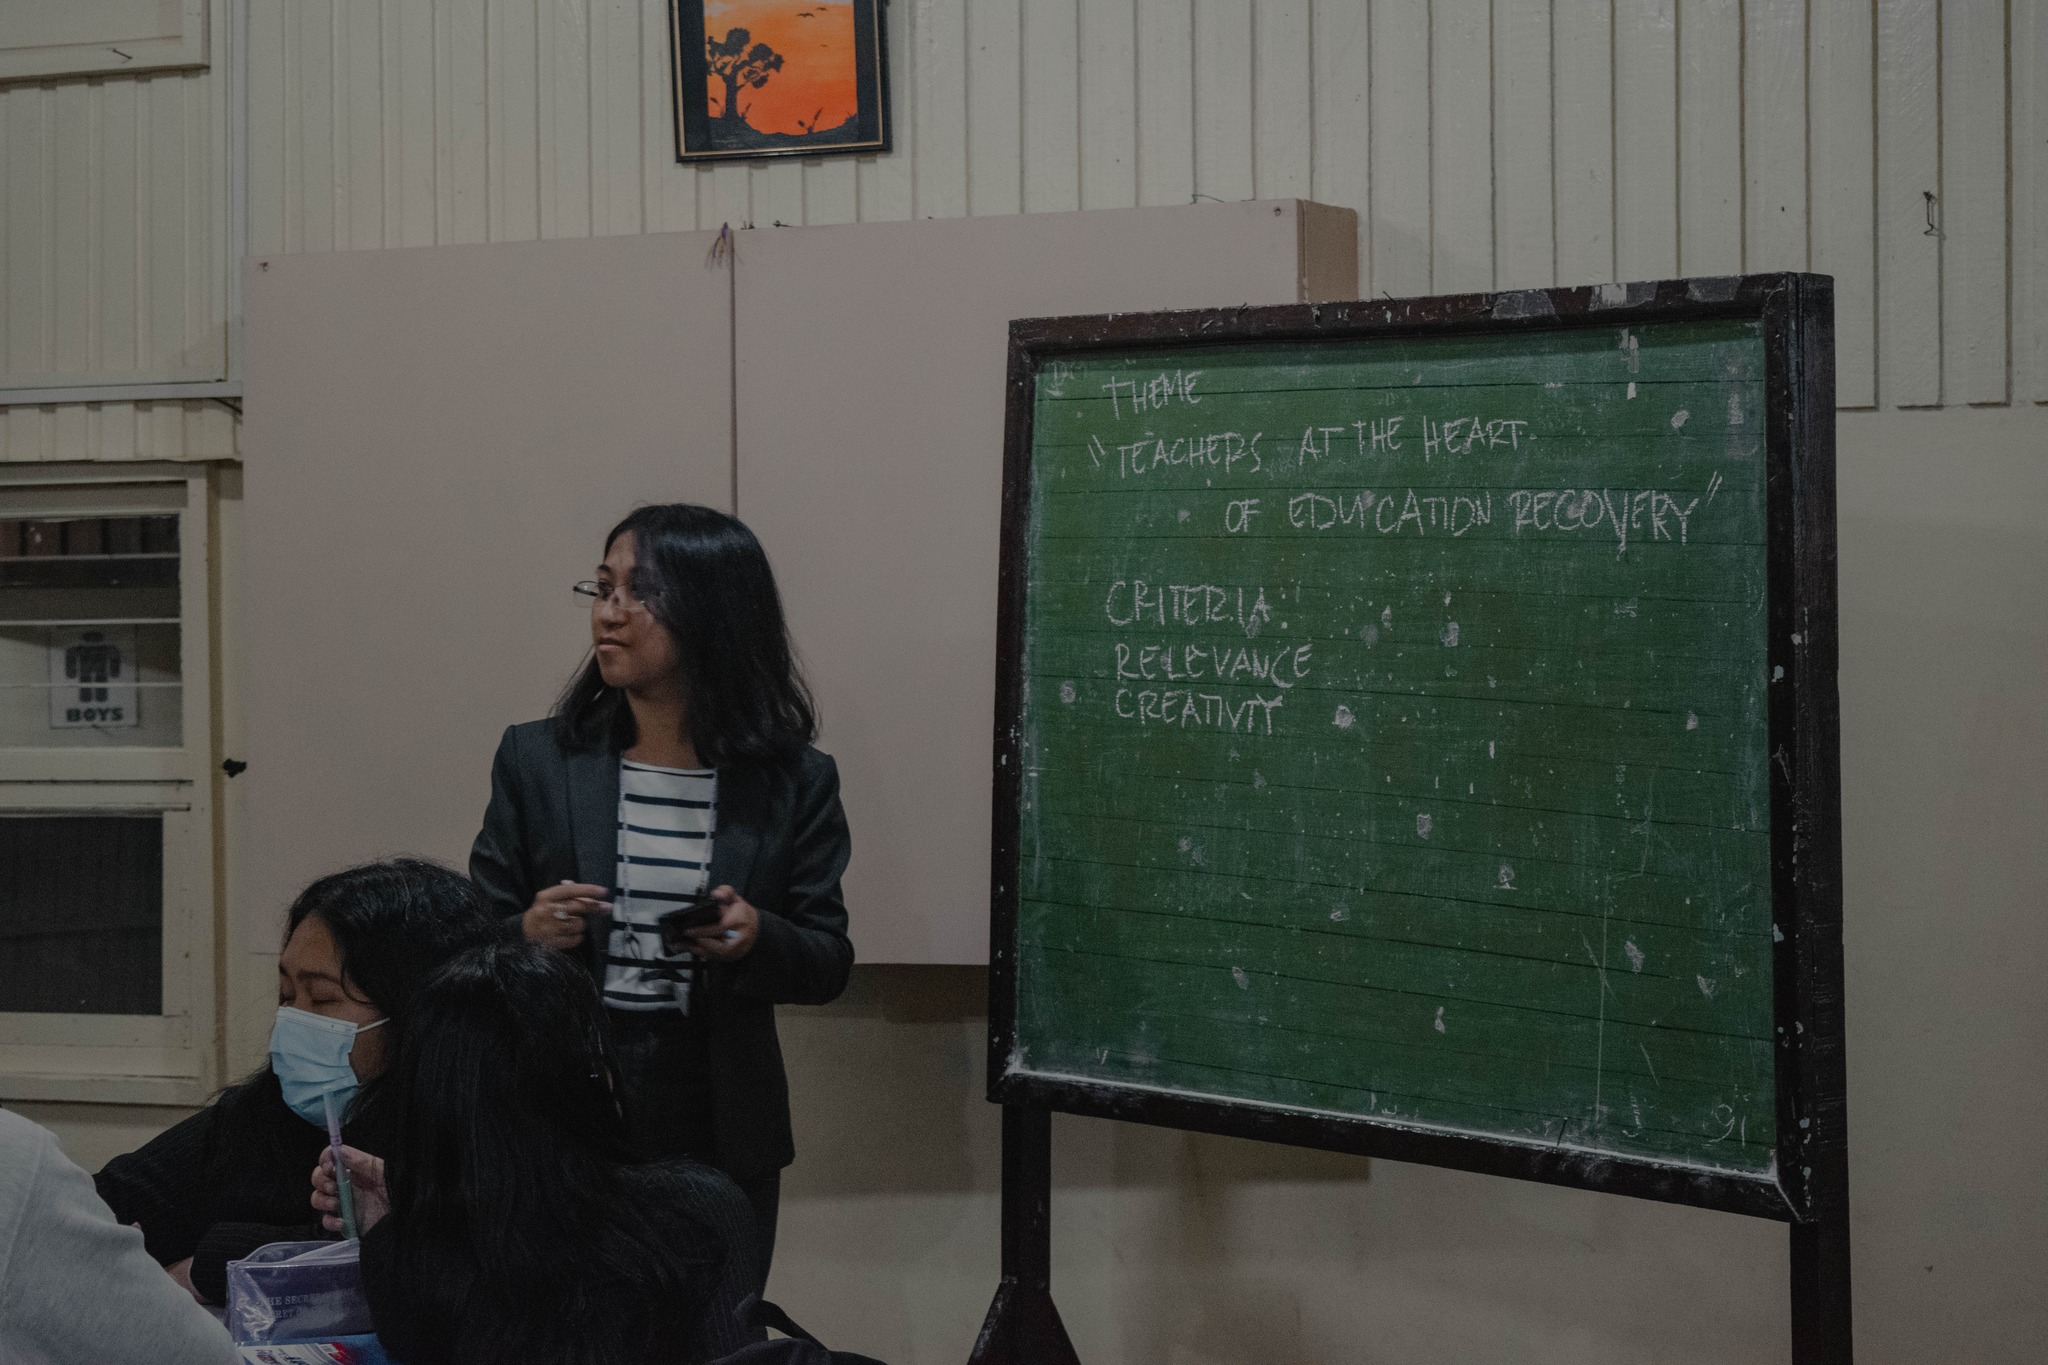 THEME
"TEACHERS AT THE HEART
OF EDUCATION RECOVERY"
CRITERIA:
RELEVANCE
CREATIVITY
BOYS
THE SECRE